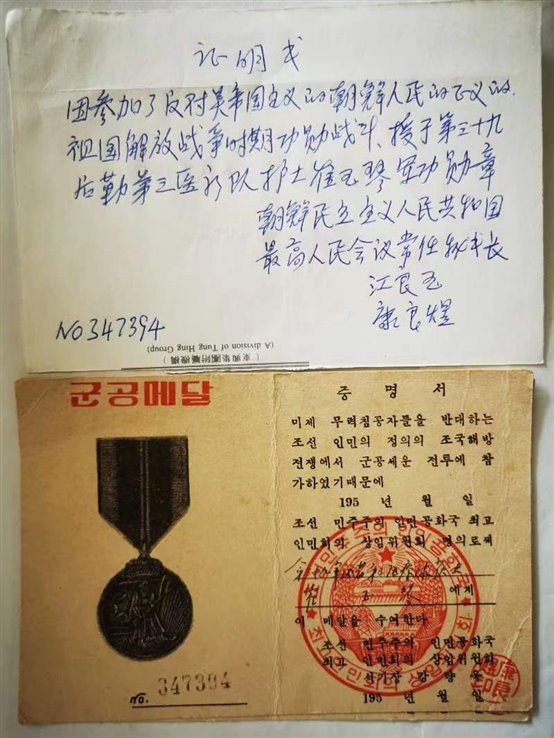 证明书
因参加了反对美帝国主义的朝鲜人民的正义的
祖国解放战争时期功勋战斗、授于第三十九
后勤第三医疗队护士崔玉琴军功勋章
朝鲜民主主义人民共和国
最高人民会议常任秘书长
江良玉
康良煜
NO347394
(A division of Tung Hing Group)
(東興集團附屬機構)
군공메달
NO. 347394
증명서
미제 무력침공자들을 반대하는
조선 인민의 정의의 조국해방
전쟁에서 군공세운 전투에 참
가하였기때문에
195 년 월 일
조선 민주주의 인민공화국 최고
인민회의 상임위원회 명의로써
崔玉琴 에게
이 메달을 수여한다
조선 민주주의 인민공화국
최고 인민회의 상임위원회
서기장 강량욱
195 년 월 일